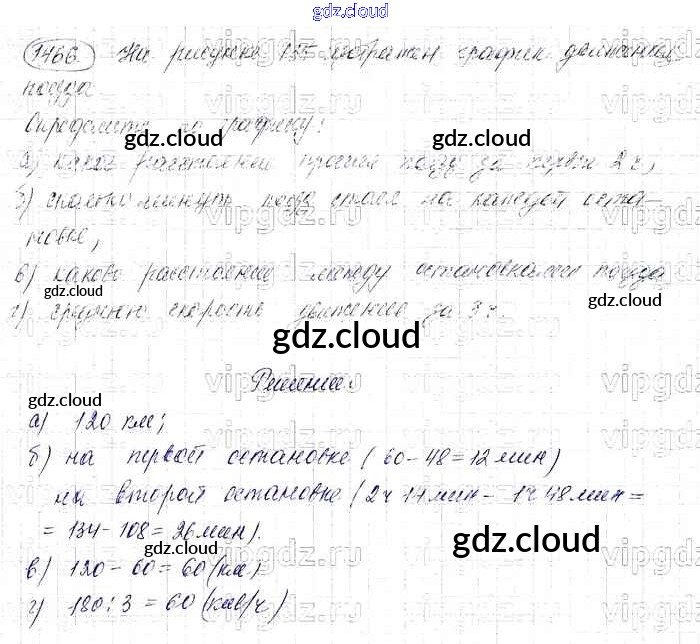 gdz.cloud
1466 На рисунке 155 изображен график движения
поезда
Определите по графику:
а) какое расстояние прошел поезд за первые 2 ч,
б) сколько минут поезд стоял на каждой оста-
новке,
в) каково расстояние между остановками поезда
г) среднюю скорость движения за 3 ч.
Решение.
а) 120 км;
б) на первой остановке (60-48=12 мин)
на второй остановке (2ч 14мин - 1ч 48мин =
= 134-108=26мин).
в) 120-60=60(км)
г) 180:3=60(км/ч)
gdz.cloud
gdz.cloud
gdz.cloud
gdz.cloud
gdz.cloud
gdz.cloud
gdz.cloud
gdz.cloud